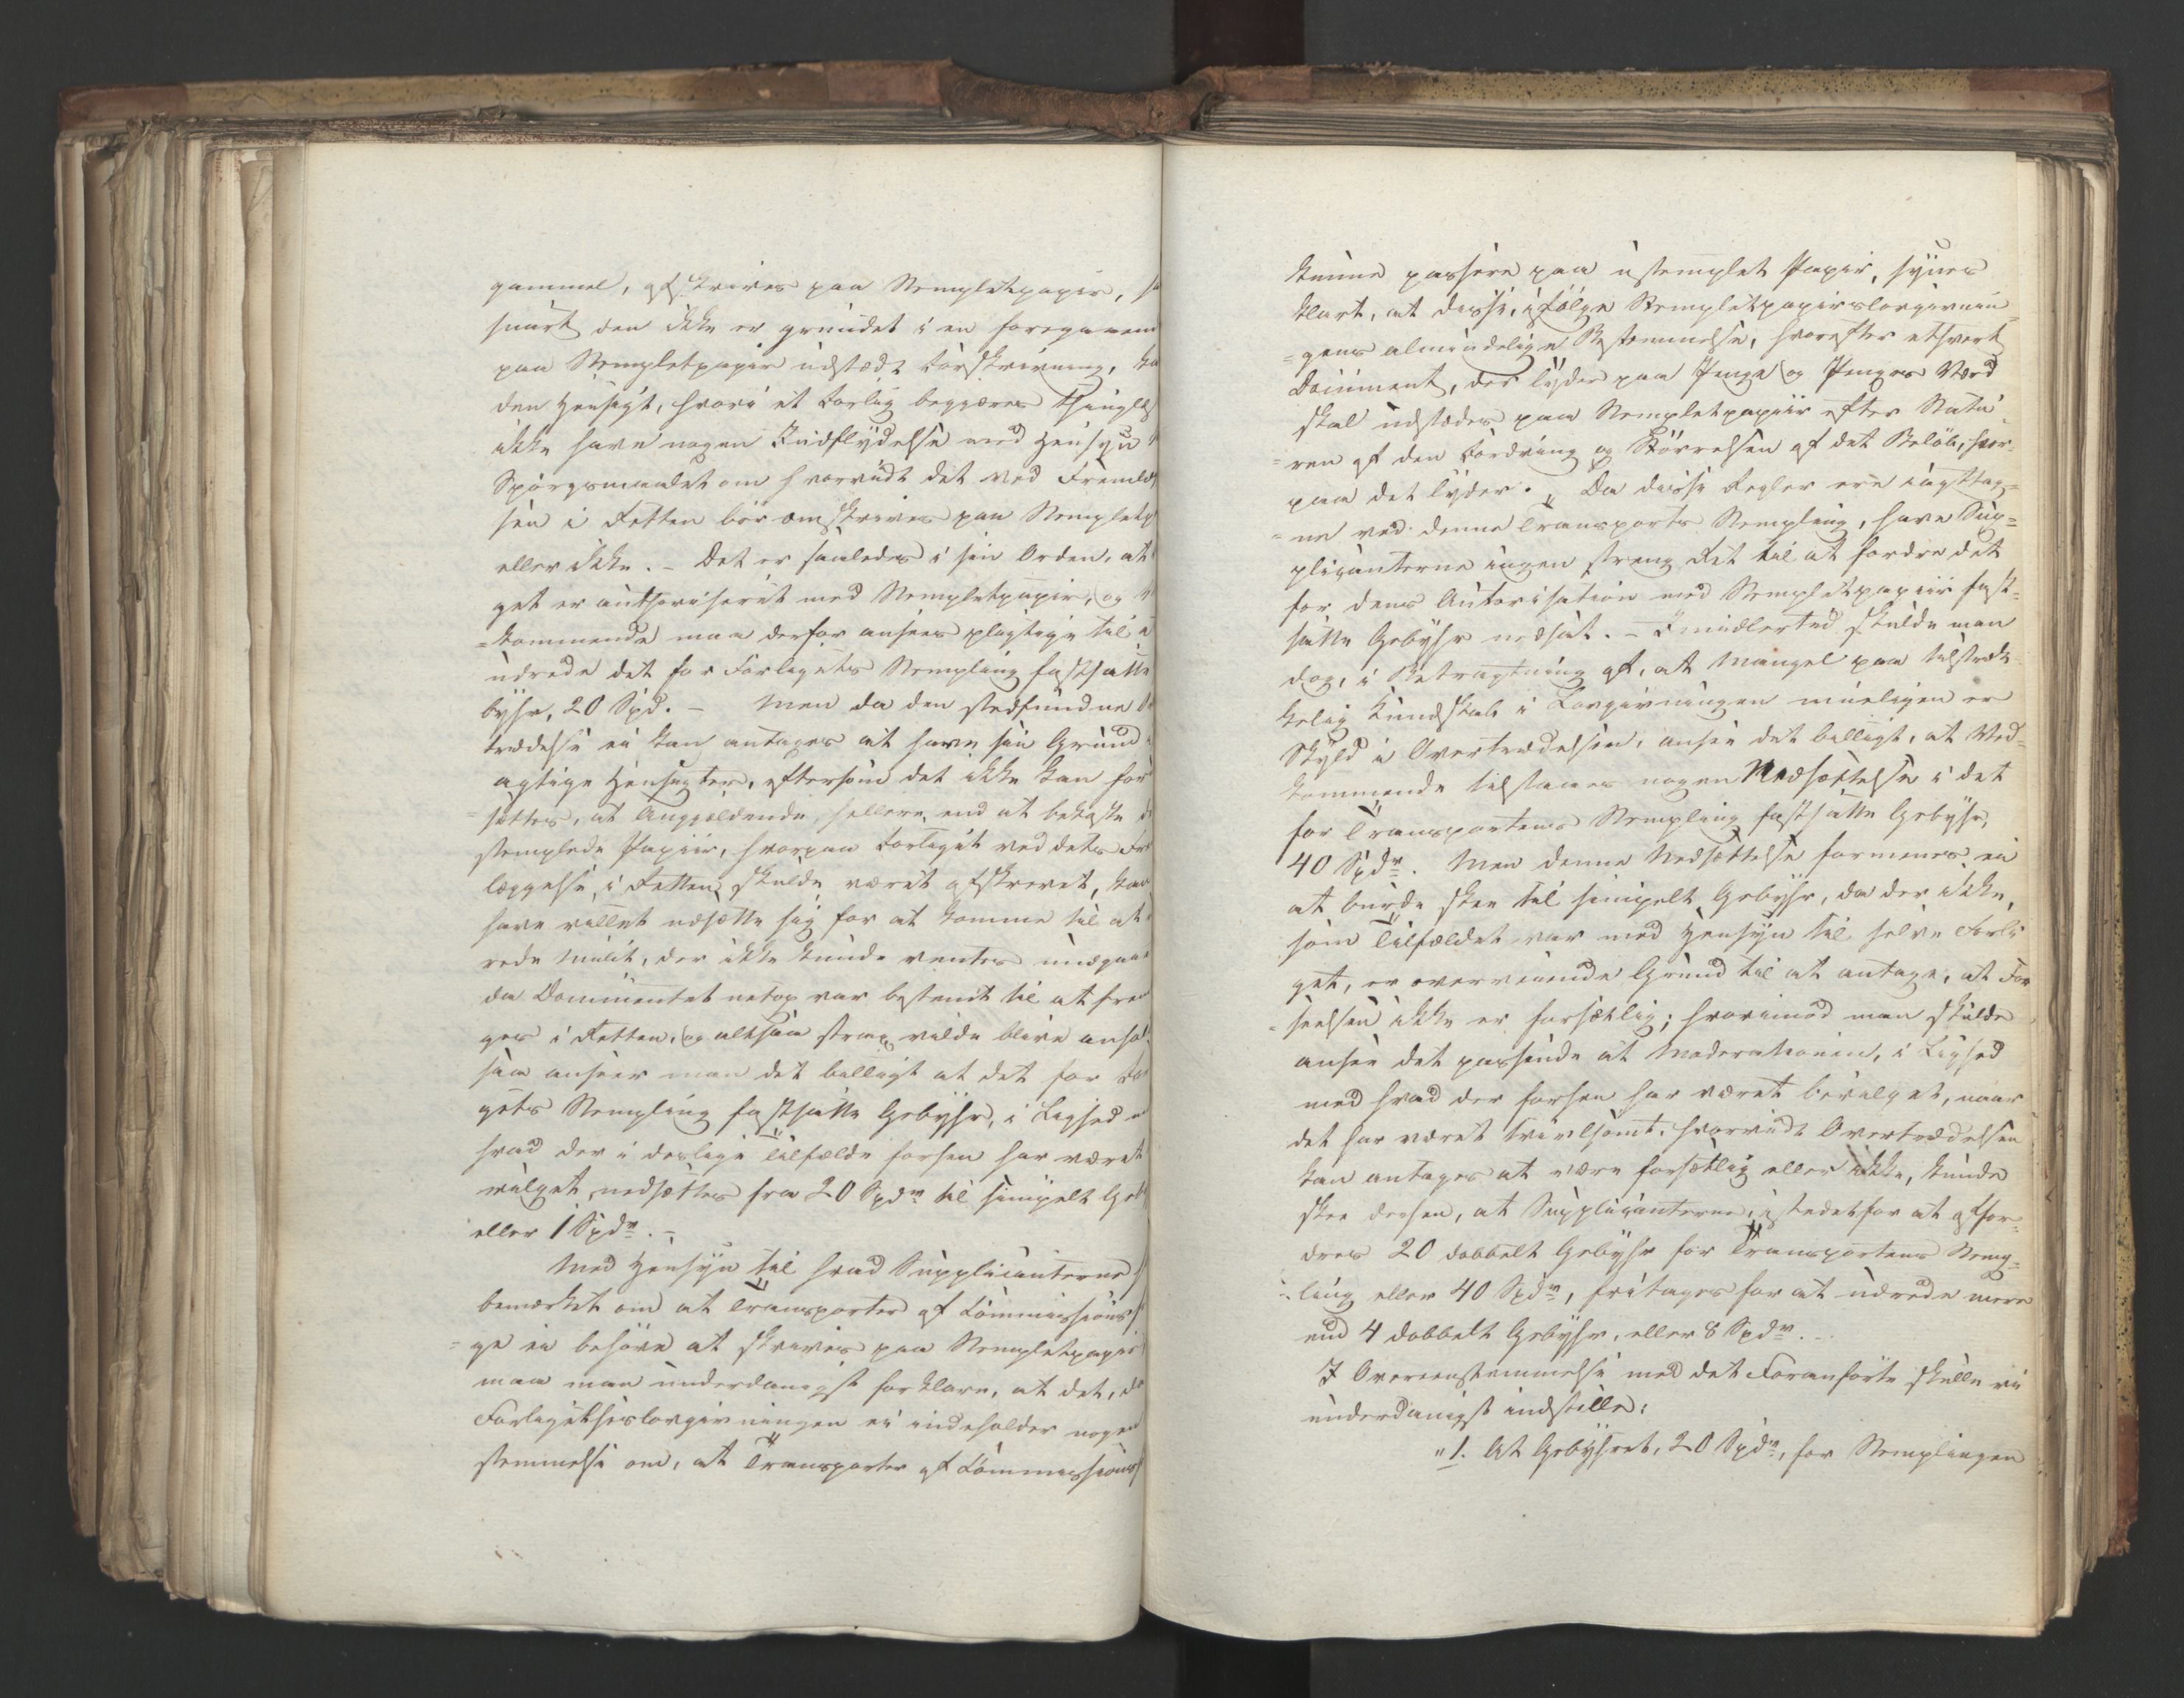 gammel, afskrives paa Stempletpapir, sa
snart den ikke er grundet i en foregaaend
paa Stempletpapir udstædt Forskrivning, ka
den Hensigt, hvori et Forlig begjæres thinglæs
ikke have nogen Indflydelse med Hensyn t
Spørgsmaalet om hvorvidt det ved Fremlæg
sen i Retten bör omskrives paa Stempletp
eller ikke. – Det er saaledes i sin Orden, at
get er authoriseret med Stempletpapir, og
=kommende maa derfor ansees pligtige til a
udrede det for Forligets Stempling fastsatte
byhr, 20 Spd. – Men da den stedfundne O
trædelse ei kan antages at have sin Grund
agtige Hensigter, eftersom det ikke kan for
=sættes, at Angjældende, hellere end at bekoste d
stemplede Papiir, hvorpaa Forliget ved dets Fr
læggelse i Retten skulde været afskrevet, kan
have villet udsætte sig for at komme til at
rede Mulct, der ikke kunde ventes undgaae
da Documentet netop var bestemt til at frem
ges i Retten, og altsaa strax vilde blive anhol
saa anseer man det billigt at det for For
gets Stempling fastsatte Gebyhr, i Lighed m
hvad der i deslige Tilfælde forhen har været
vilget, nedsættes fra 20 Spdr til simpelt Geb
eller 1 Spdr. –
Med Hensyn til hvad Supplicanterne
bemærket om at Transporter af Commissions
=ge ei behöve at skrives paa Stempletpapir
maa man underdanigst forklare, at det, da
Forligelseslovgivningen ei indeholder nogen
stemmelse om, at Transporter af Commissions
kunne passere paa ustemplet Papir, synes
klart, at disse, ifölge Stempletpapirslovgivnin=
=gens almindelige Bestemmelse, hvorefter ethvert
Document, der lyder paa Penge og Penges Værd
skal udstædes paa Stempletpapiir efter Natu
=ren af den Fordring og Störrelsen af det Belöb, hvor=
paa det lyder. Da disse Regler ere iagttag=
=ne ved denne Transports Stempling, have Sup=
plicanterne ingen streng Ret til at fordre det
for dens Autorisation med Stempletpapiir fast=
satte Gebyhr nedsat. – Imidlertid skulde man
dog, i Betragtning af, at Mangel paa tilstræk
kelig Kundskab i Lovgivningen mueligen er
Skyld i Overtrædelsen, ansee det billigt, at Ved=
kommende tilstaaes nogen Nedsættelse i det
for Transportens Stempling fastsatte Gebyhr,
40 Spdr. Men denne Nedsættelse formenes ei
at burde skee til simpelt Gebyhr, da der ikke,
som Tilfældet var med Hensyn til selve Forli
get, er overveiende Grund til at antage, at For
=seelsen ikke er forsætlig; hvorimod man skulde
ansee det passende at Moderationen, i Lighed
med hvad der forhen har været bevilget, naar
det har været tvivlsomt, hvorvidt Overtrædelsen
kan antages at være forsætlig eller ikke, kunde
skee derhen, at Supplicanterne, istedetfor at affor=
dres 20 dobbelt Gebyhr for Transportens Stemp=
=ling eller 40 Spdr, fritages for at udrede mere
end 4 dobbelt Gebyhr, eller 8 Spdr. –
I Overeensstemmelse med det Foranförte skulle vi
underdanigst indstille:
"1. At Gebyhret, 20 Spdr, for Stemplingen